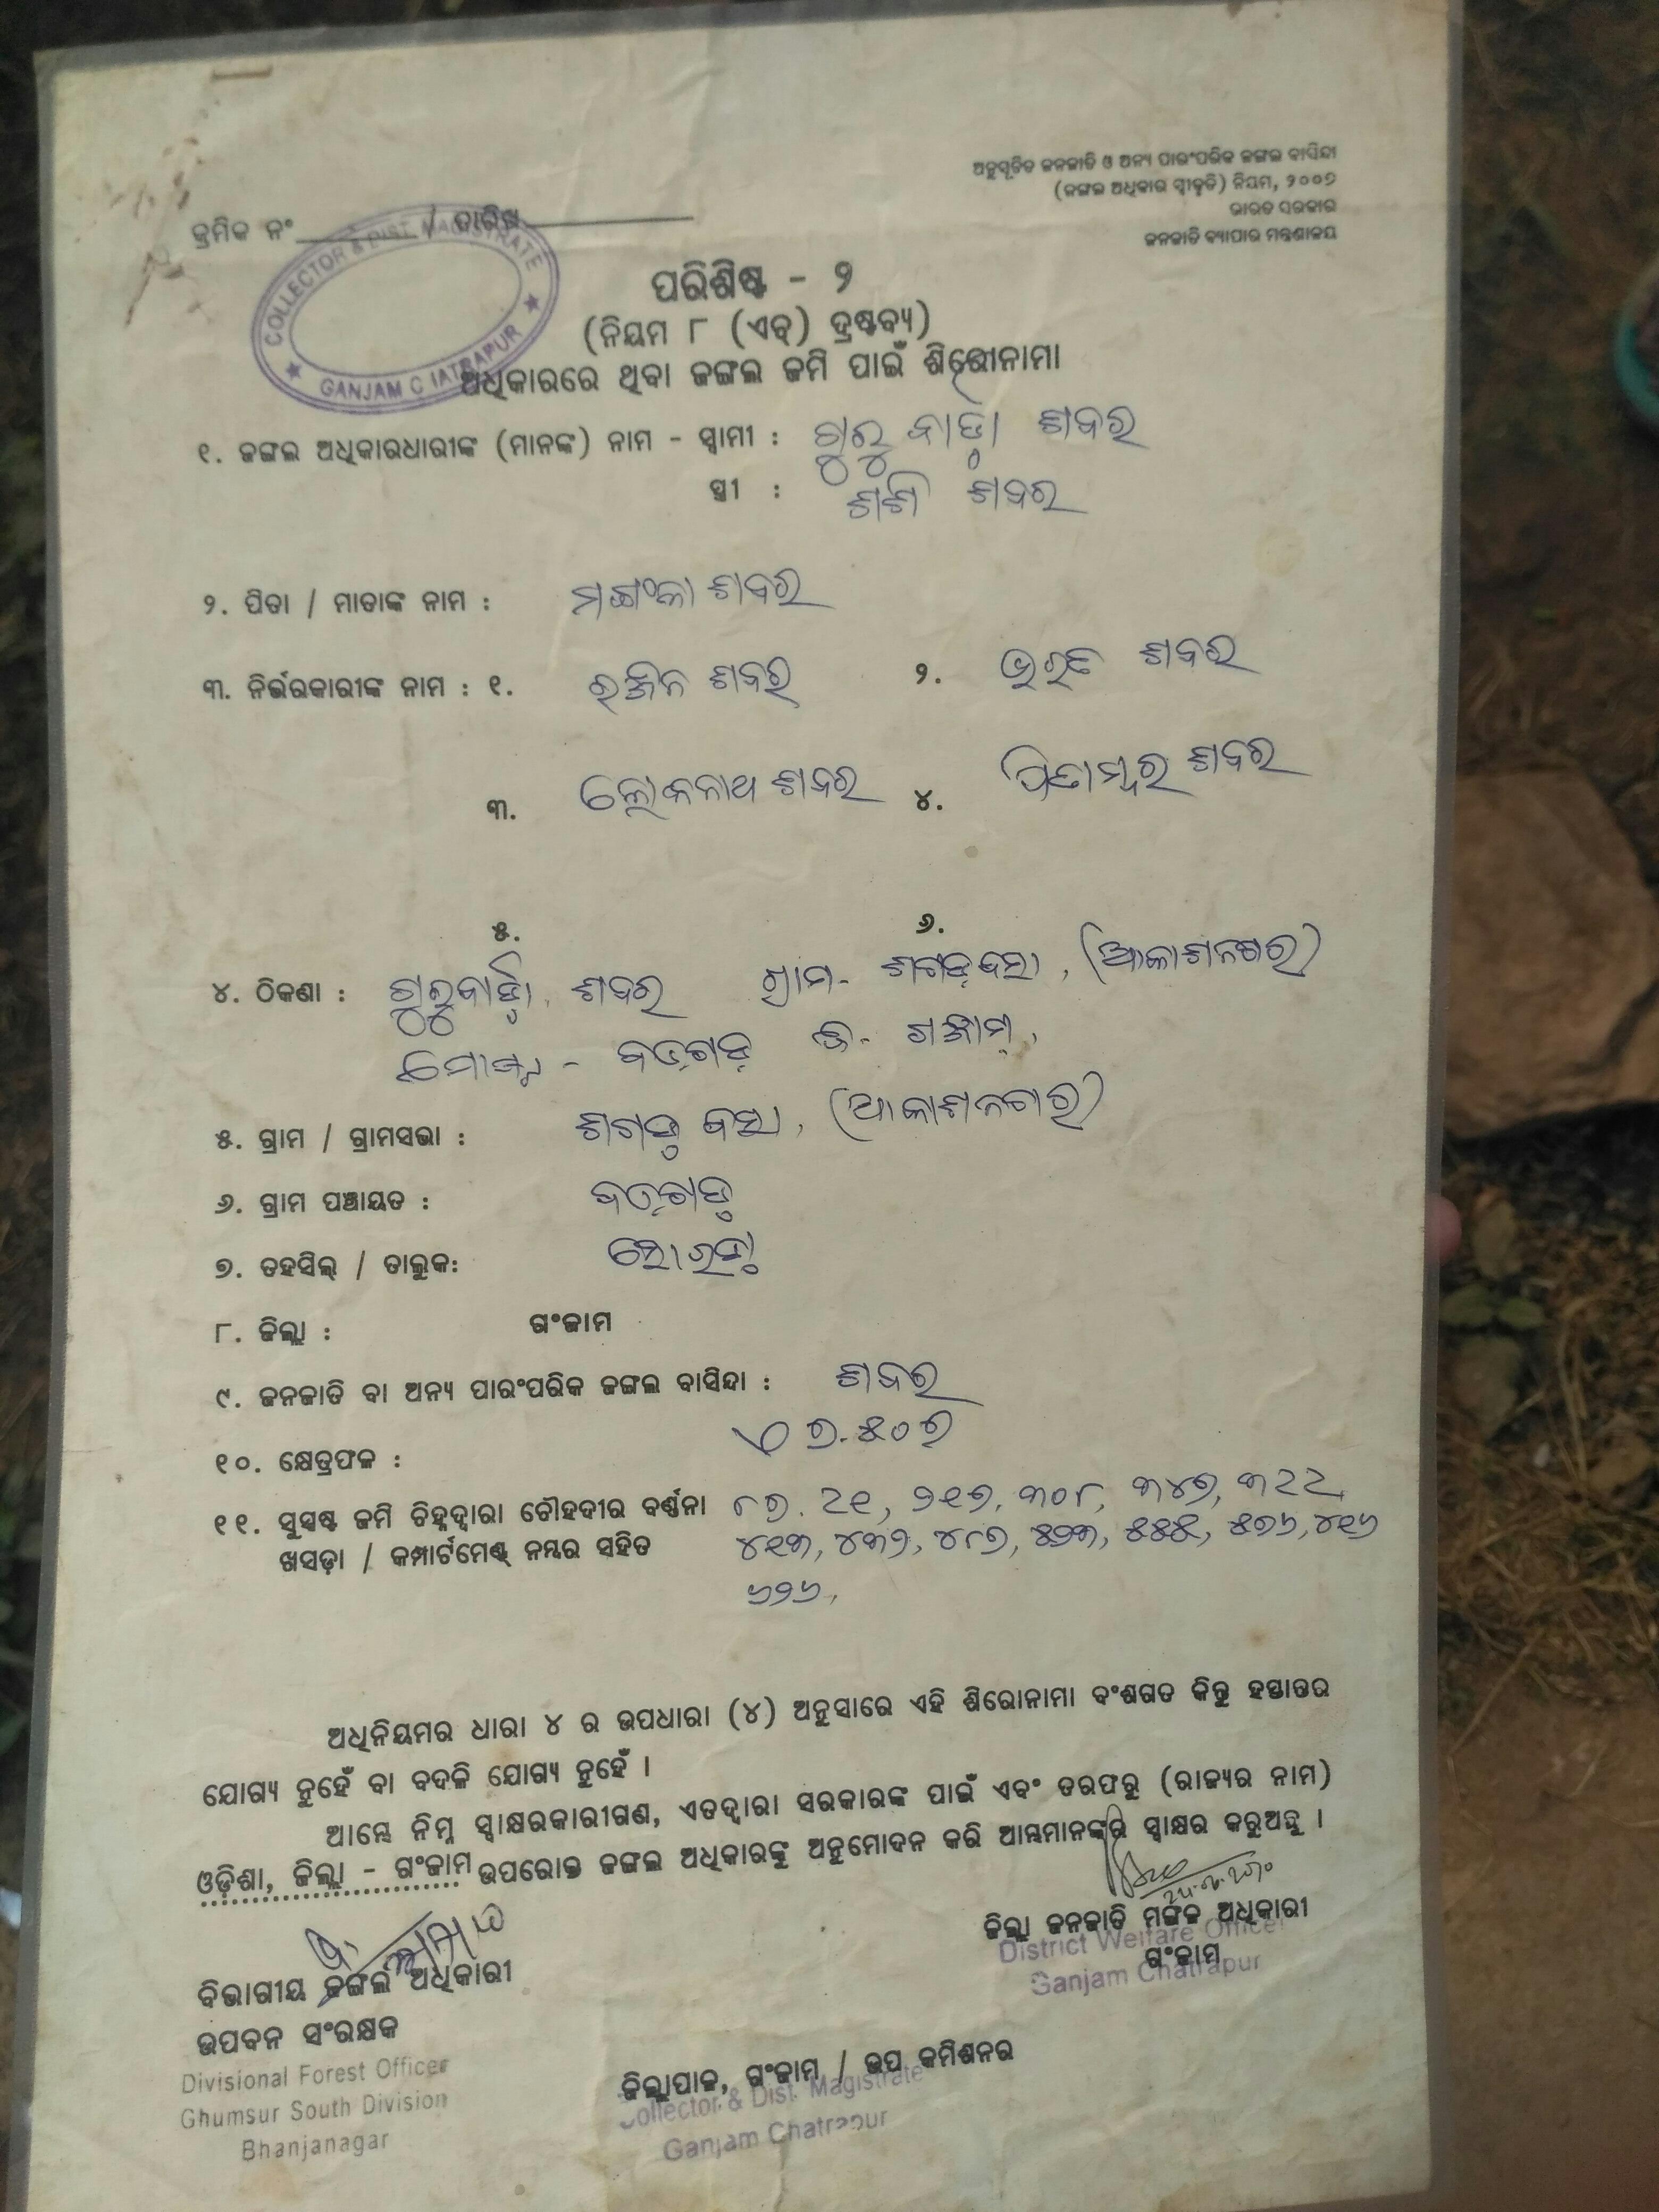 ଅନୁସୂଚିତ ଜନଜାତି ଓ ଅନ୍ୟ ପାରଂପରିକ ଜଙ୍ଗଲ ବାସିନ୍ଦା
(ଜଙ୍ଗଲ ଅଧିକାର ସ୍ୱୀକୃତି) ନିୟମ, ୨୦୦୭
ଭାରତ ସରକାର
ଜନଜାତି ବ୍ୟାପାର ମନ୍ତ୍ରଣାଳୟ
କ୍ରମିକ ନଂ / ତାରିଖ
COLLECTOR & DIST. MAGISTRATE
GANJAM CHATRAPUR
ପରିଶିଷ୍ଟ - ୨
(ନିୟମ ୮ (ଏଚ୍) ଦ୍ରଷ୍ଟବ୍ୟ)
ଅଧିକାରରେ ଥିବା ଜଙ୍ଗଲ ଜମି ପାଇଁ ଶିରୋନାମା
୧. ଜଙ୍ଗଲ ଅଧିକାରଧାରୀଙ୍କ (ମାନଙ୍କ) ନାମ - ସ୍ୱାମୀ : ଶବର
ସ୍ତ୍ରୀ : ଶଶି ଶବର
୨. ପିତା / ମାତାଙ୍କ ନାମ : ଶବର
୩. ନିର୍ଭରକାରୀଙ୍କ ନାମ : ୧. ରଞ୍ଜିନ ଶବର ୨. ଭରତ ଶବର
୩. ଲୋକନାଥ ଶବର ୪. ପିତାମ୍ବର ଶବର
୫. ୬.
୪. ଠିକଣା : ଶବର ଗ୍ରାମ- (ଆକାଶନଗର)
ବଡ଼ଗଡ଼ ଜି- ଗଞ୍ଜାମ,
୫. ଗ୍ରାମ / ଗ୍ରାମସଭା : (ଆକାଶନଗର)
୬. ଗ୍ରାମ ପଞ୍ଚାୟତ : ବଡ଼ଗଡ଼
୭. ତହସିଲ୍ / ତାଲୁକ: ସୋରଡ଼ା
୮. ଜିଲ୍ଲା : ଗଂଜାମ
୯. ଜନଜାତି ବା ଅନ୍ୟ ପାରଂପରିକ ଜଙ୍ଗଲ ବାସିନ୍ଦା : ଶବର
୧୦. କ୍ଷେତ୍ରଫଳ :
୧୧. ସୁସ୍ପଷ୍ଟ ଜମି ଚିହ୍ନଦ୍ୱାରା ଚୌହଦୀର ବର୍ଣ୍ଣନା ୮୭. ୨୧୭, ୩୦୮, ୩୪୭,
ଖସଡ଼ା / କମ୍ପାର୍ଟମେଣ୍ଟ୍ ନମ୍ବର ସହିତ ୪୧୩, ୪୩୨, ୪୮୭, ୫୨୩, ୫୫୫, ୫୭୬, ୪୧୬
୬୨୬,
ଅଧିନିୟମର ଧାରା ୪ ର ଉପଧାରା (୪) ଅନୁସାରେ ଏହି ଶିରୋନାମା ବଂଶଗତ କିନ୍ତୁ ହସ୍ତାନ୍ତର
ଯୋଗ୍ୟ ନୁହେଁ ବା ବଦଳି ଯୋଗ୍ୟ ନୁହେଁ ।
ଆମ୍ଭେ ନିମ୍ନ ସ୍ୱାକ୍ଷରକାରୀଗଣ, ଏତଦ୍ୱାରା ସରକାରଙ୍କ ପାଇଁ ଏବଂ ତରଫରୁ (ରାଜ୍ୟର ନାମ)
ଓଡ଼ିଶା, ଜିଲ୍ଲା - ଗଂଜାମ ଉପରୋକ୍ତ ଜଙ୍ଗଲ ଅଧିକାରଙ୍କୁ ଅନୁମୋଦନ କରି ଆମ୍ଭମାନଙ୍କର ସ୍ୱାକ୍ଷର କରୁଅଛୁ ।
ଜିଲ୍ଲା ଜନଜାତି ମଙ୍ଗଳ ଅଧିକାରୀ
ଗଂଜାମ
District Welfare Officer
Ganjam Chatrapur
ବିଭାଗୀୟ ଜଙ୍ଗଲ ଅଧିକାରୀ
ଉପବନ ସଂରକ୍ଷକ
Divisional Forest Officer
Ghumsur South Division
Bhanjanagar
ଜିଲ୍ଲାପାଳ, ଗଂଜାମ / ଉପ କମିଶନର
Collector & Dist. Magistrate
Ganjam Chatrapur